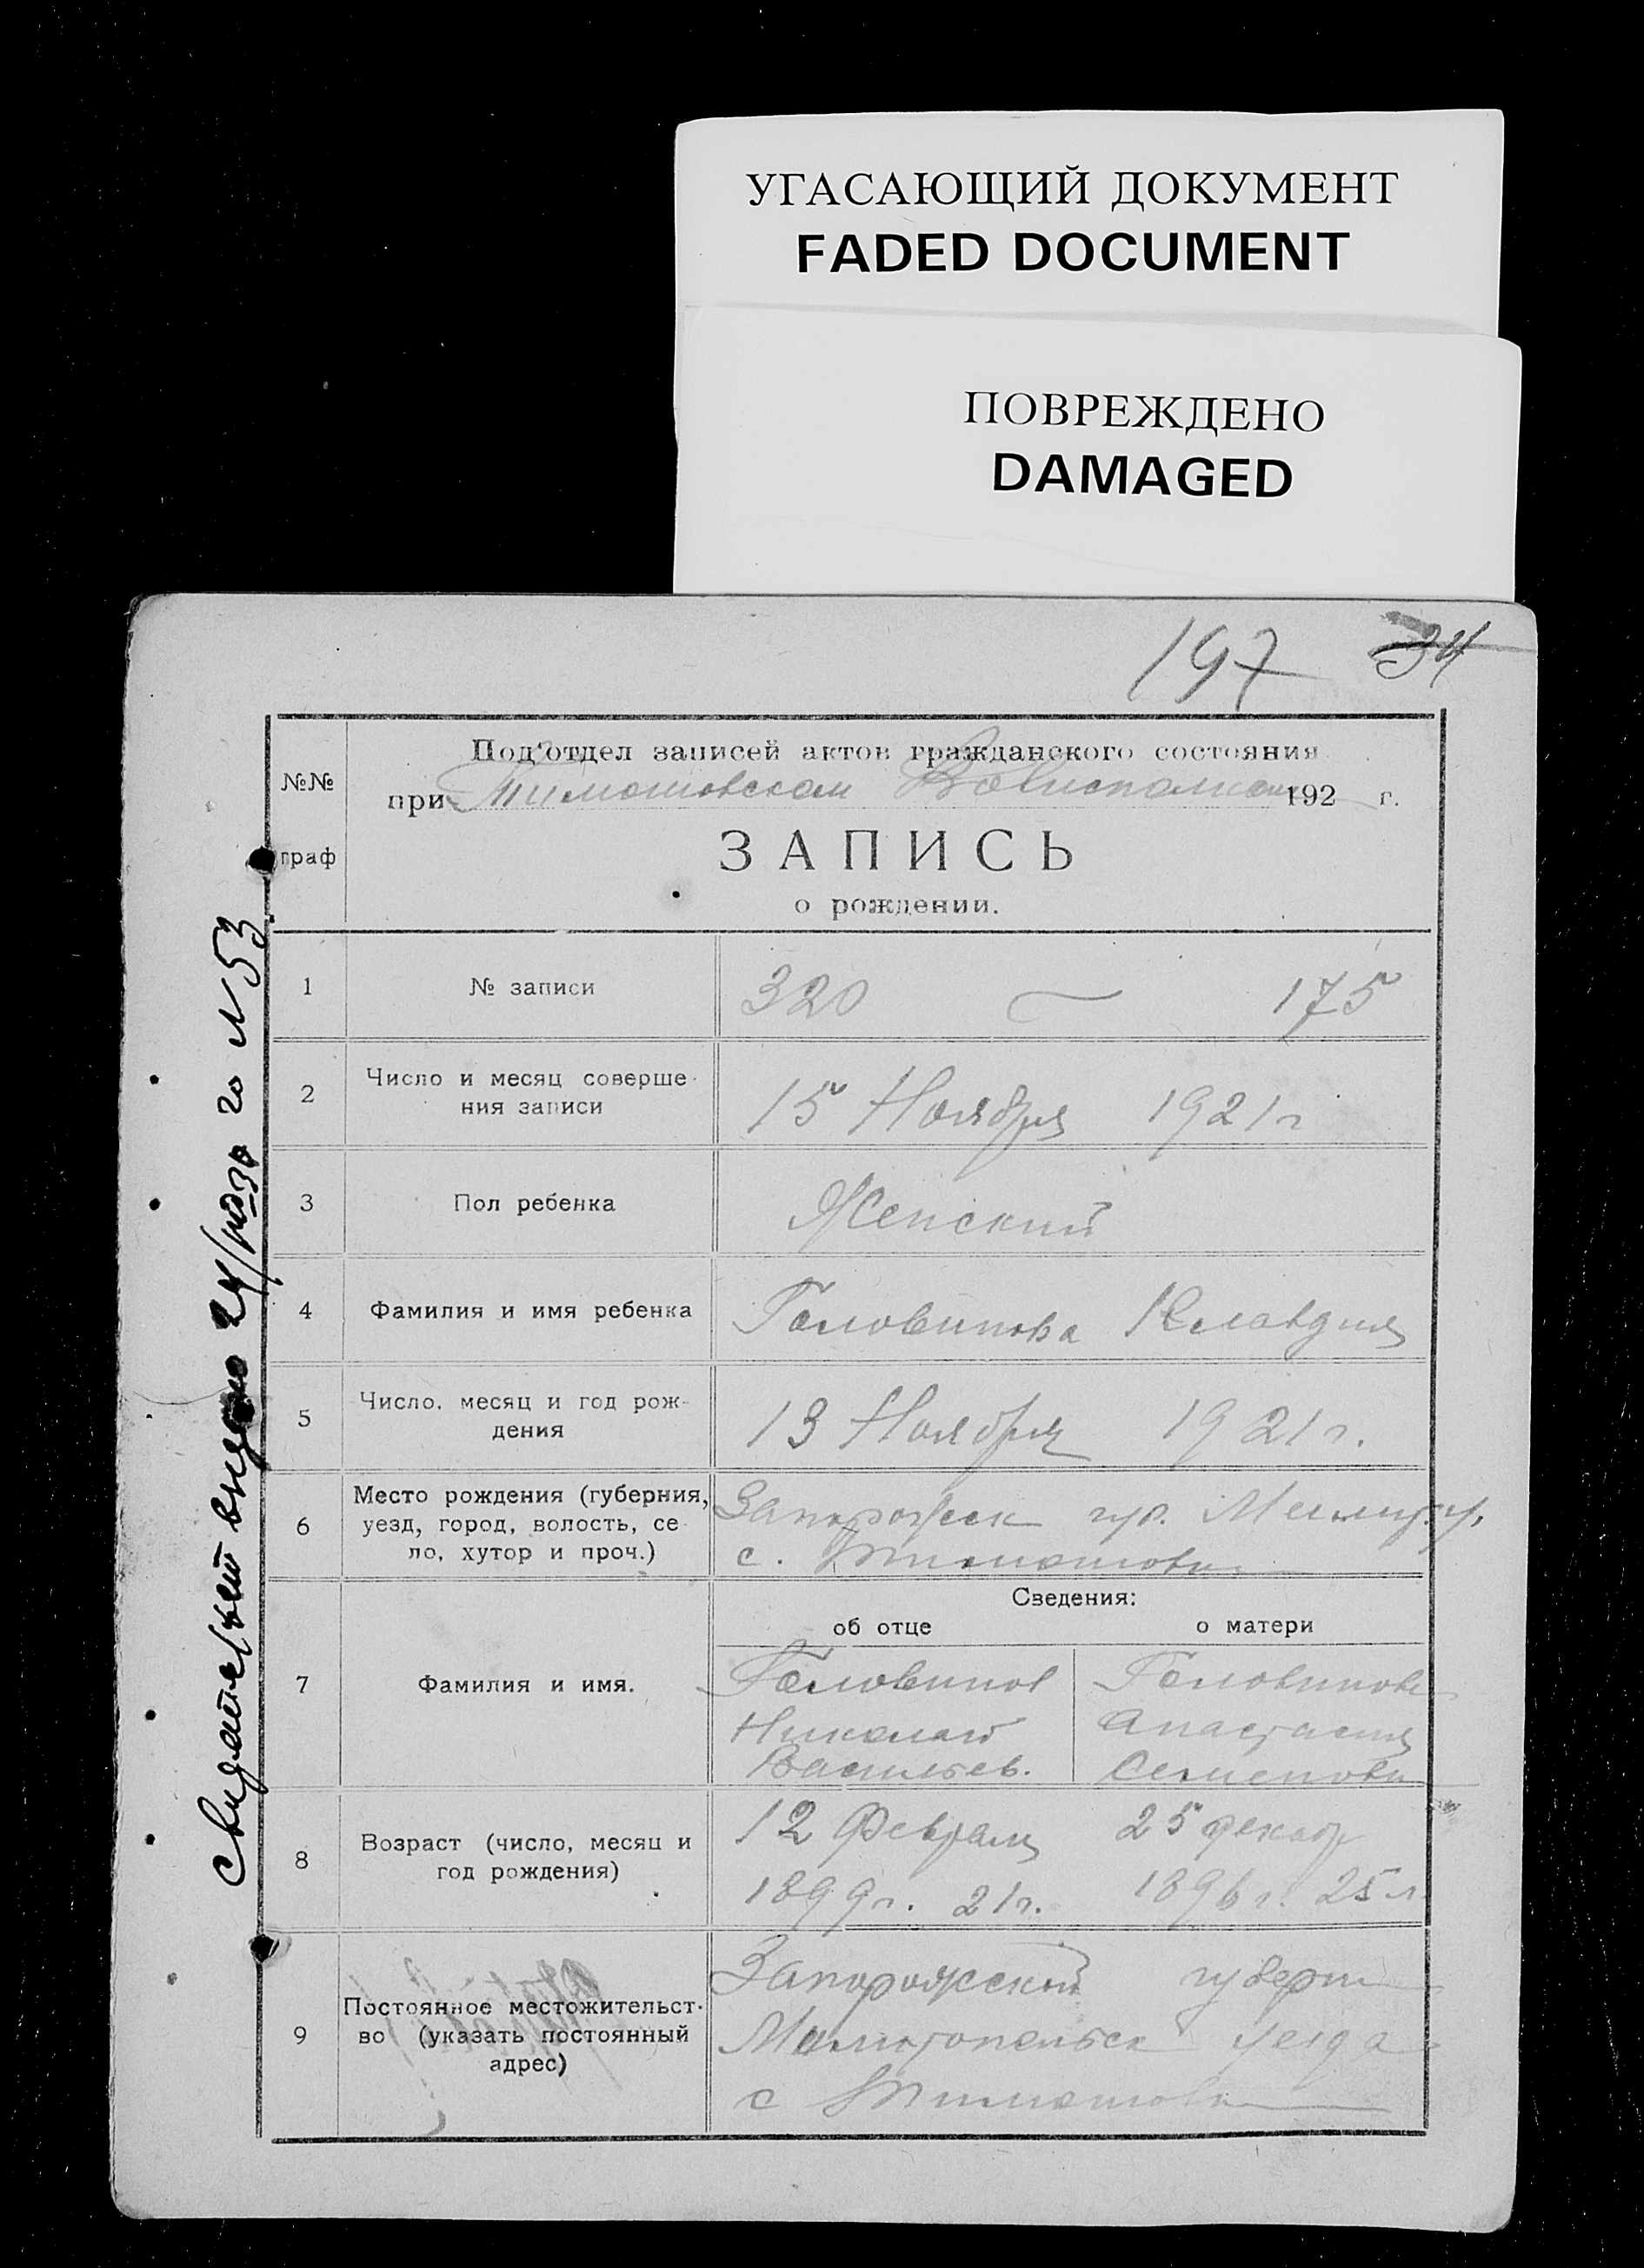 УГАСАЮЩИЙ ДОКУМЕНТ
FADED DOCUMENT
ПОВРЕЖДЕНО
DAMAGED
197 34
№№ граф
Под'отдел записей актов гражданского состояния
при Тимошовском Волисполкоме 192 г.
ЗАПИСЬ
о рождении.
1 № записи 320 — 175
2 Число и месяц соверше-
ния записи
15 Ноября 1921 г
3 Пол ребенка Женский
4 Фамилия и имя ребенка Головинова Клавдия
5 Число, месяц и год рож-
дения
13 Ноября 1921 г.
6 Место рождения (губерния,
уезд, город, волость, се-
ло, хутор и проч.)
Запорожск губ. Мелит. у.
с. Тимошовка
Сведения:
об отце о матери
7 Фамилия и имя.
Головинов
Николай
Васильев.
Головинова
Анастасия
Семенова
8 Возраст (число, месяц и
год рождения)
12 Февраля
1899 г. 21 г.
25 декаб
1896 г. 25 л
9 Постоянное местожительст-
во (указать постоянный
адрес)
Запорожской губерн
Мелитопольск уезда
с Тимошовка
Свидетельст выдано 24/ 30 го № 53